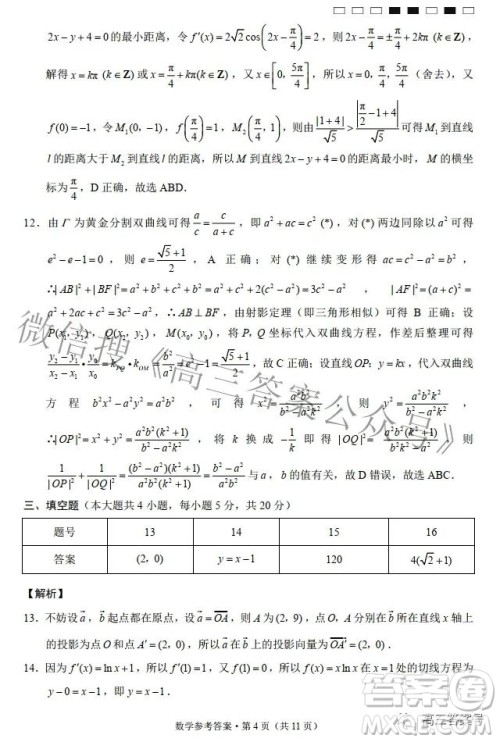 2x−y+4=0的最小距离，令f′(x)=2√2cos(2x−π/4)=2，则2x−π/4=±π/4+2kπ(k∈Z)，
解得x=kπ(k∈Z)或x=π/4+kπ(k∈Z)，又x∈[0，5π/4]，所以x=0，π/4，5π/4（舍去），又
f(0)=−1，令M₁(0，−1)，f(π/4)=1，M₂(π/4，1)，则由|1+4|/√5>|π/2−1+4|/√5可得M₁到直线
l的距离大于M₂到直线l的距离，所以M到直线2x−y+4=0的距离最小时，M的横坐
标为π/4，D正确，故选ABD．
12．由Γ为黄金分割双曲线可得a/c=c/(a+c)，即a²+ac=c² (*)，对(*)两边同除以a²可得
e²−e−1=0，则e=(√5+1)/2，A正确；对(*)继续变形得ac=c²−a²=b²，
∴|AB|²+|BF|²=a²+b²+c²+b²=a²+c²+2(c²−a²)=3c²−a²，|AF|²=(a+c)²=
a²+2ac+c²=3c²−a²，∴AB⊥BF，由射影定理（即三角形相似）可得B正确；设
P(x₁，y₁)，Q(x₂，y₂)，M(x₀，y₀)，将P，Q坐标代入双曲线方程，作差后整理可得
(y₂−y₁)/(x₂−x₁)·y₀/x₀=k_PQ·k_OM=b²/a²=e²−1=(√5+1)/2，故C正确；设直线OP：y=kx，代入双曲线
方程b²x²−a²y²=a²b²，可得x²=a²b²/(b²−a²k²)，y²=a²b²k²/(b²−a²k²)，
∴|OP|²=x²+y²=a²b²(k²+1)/(b²−a²k²)，将k换成−1/k即得|OQ|²=a²b²(k²+1)/(b²k²−a²)，则
1/|OP|²+1/|OQ|²=(b²−a²)(k²+1)/(a²b²(k²+1))=(b²−a²)/(a²b²)与a，b的值有关，故D错误，故选ABC．
三、填空题（本大题共4小题，每小题5分，共20分）
题号 13 14 15 16
答案 (2，0) y=x−1 120 4(√2+1)
【解析】
13．不妨设a⃗，b⃗起点都在原点，设a⃗=OA⃗，则A为(2，9)，点O，A分别在b⃗所在直线x轴上
的投影为点O和A′=(2，0)，所以a⃗在b⃗上的投影向量为OA′⃗=(2，0)．
14．因为f′(x)=lnx+1，所以f′(1)=1，又f(1)=0，所以f(x)=xlnx在x=1处的切线方程为
y−0=x−1，即y=x−1．
数学参考答案·第4页（共11页）
微信搜《高三答案公众号》
答案圈